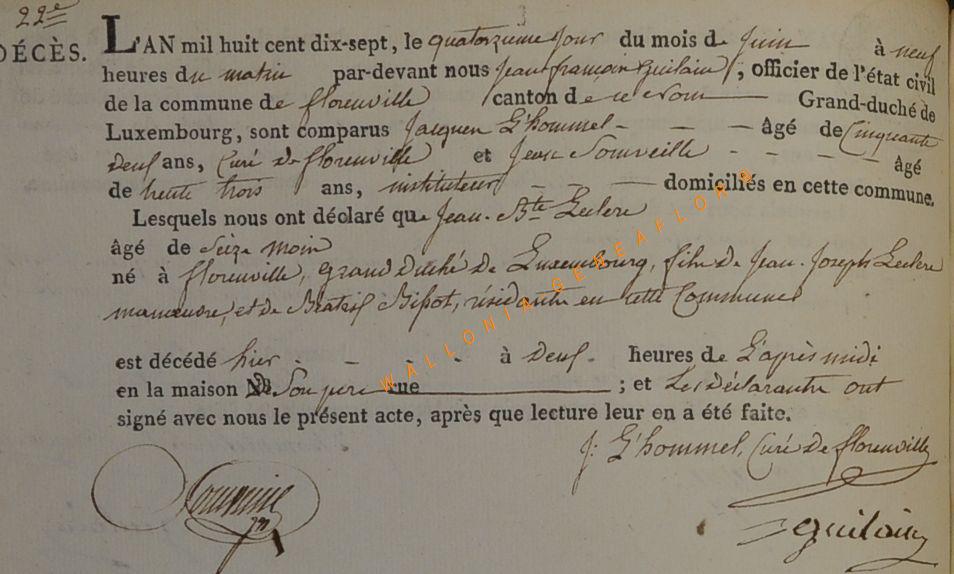 22e
DÉCÈS.
L'AN mil huit cent dix-sept, le quatorzieme jour du mois de juin à neuf
heures du matin par-devant nous Jean françois Guilain, officier de l'état civil
de la commune de florenville canton de ce nom Grand-duché de
Luxembourg, sont comparus Jacques L'hommel - - - âgé de Cinquante
deux ans, Curé de florenville et Jean - - - - âgé
de trente trois ans, instituteur - - domiciliés en cette commune.
Lesquels nous ont déclaré que Jean-Bte Leclere
âgé de Seize mois
né à florenville, grand duché de Luxembourg, fils de Jean-Joseph Leclere
manoeuvre, et de Beatrix, résidante en cette Commune
est décédé hier - - - - à deux - heures de L'après midi
en la maison de Son pere rue ; et Les déclarants ont
signé avec nous le présent acte, après que lecture leur en a été faite.
J: L'hommel, Curé de florenville
guilain
WALLONIA GENEAFLORE